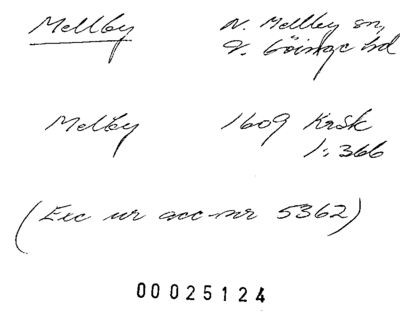 Mellby N. Mellby sn,
V. Göinge hd
Melby 1609 KrSk
1:366
(Exc ur acc-nr 5362)
00025124